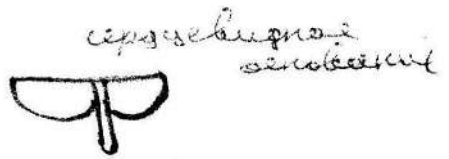 сердцевидное
основание